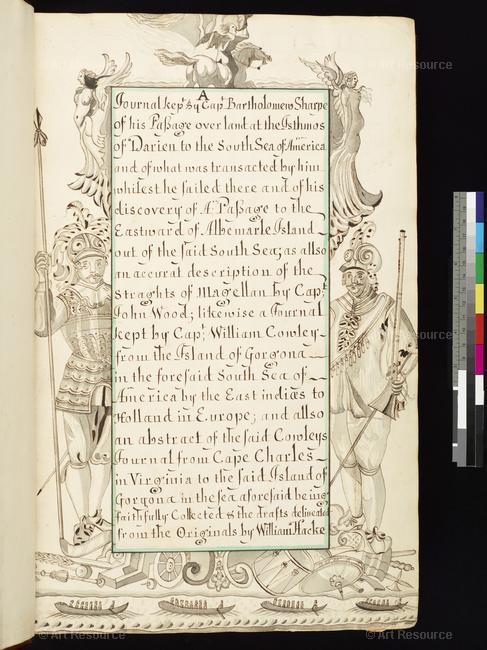 A
Journal kept by Capt Bartholomew Sharpe
of his Paſsage over land at the Isthmos
of Darien to the South Sea of America
and of what was transacted by him
whilest he sailed there and of his
discovery of A Paſsage to the
Eastward of Albemarle Island
out of the said South Sea; as also
an accurat description of the
Straghts of Magellan by Capt.
John Wood; likewise a Journal
kept by Capt. William Cowley
from the Island of Gorgona
in the foresaid South Sea of
America by the East indias to
Holland in Europe; and allso
an abstract of the said Cowleys
Journal from Cape Charles
in Virginia to the said Island of
Gorgona in the sea aforesaid being
faithfully Collected & the drafts delineated
from the Originals by William Hacke
© Art Resource
© Art Resource
© Art Resource
© Art Resource
© Art Resource
© Art Resource